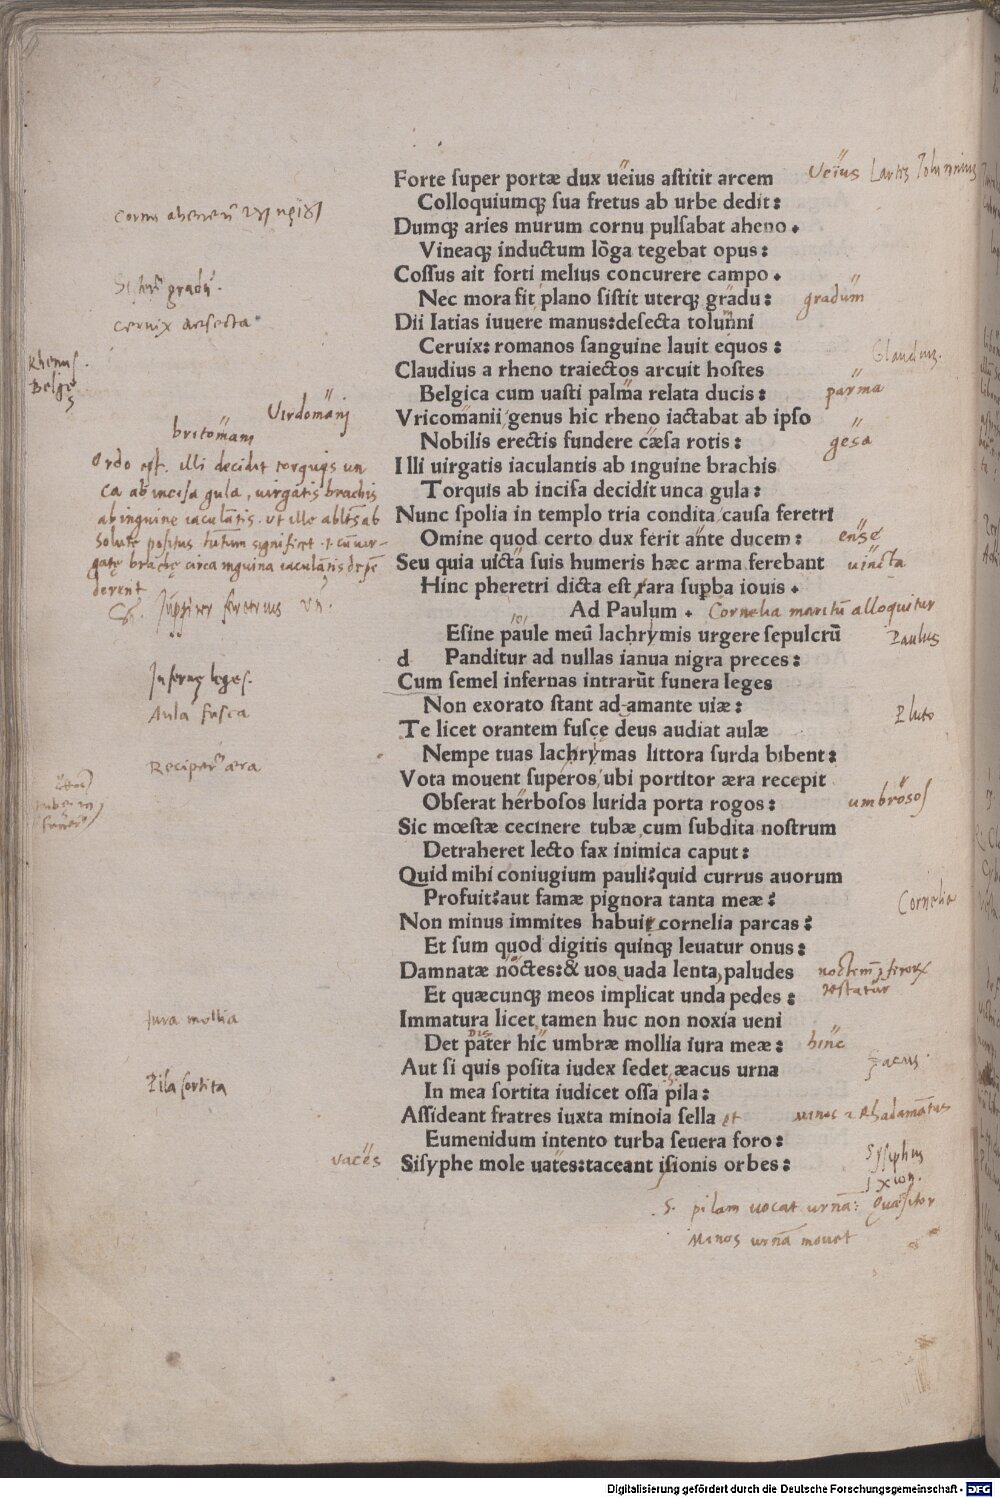 Forte ſuper portæ dux ueius aſtitit arcem
Colloquiumqꝫ ſua fretus ab urbe dedit:
Dumqꝫ aries murum cornu pulſabat aheno.
Vineaqꝫ inductum lōga tegebat opus:
Coſſus ait forti melius concurere campo.
Nec mora fit plano ſiſtit uterqꝫ gradu:
Dii latias iuuere manus:deſecta tolunni
Ceruix: romanos ſanguine lauit equos:
Claudius a rheno traiectos arcuit hoſtes
Belgica cum uaſti palma relata ducis:
Vricomanii genus hic rheno iactabat ab ipſo
Nobilis erectis fundere cæſa rotis:
Illi uirgatis iaculantis ab inguine brachis
Torquis ab inciſa decidit unca gula:
Nunc ſpolia in templo tria condita cauſa feretri
Omine quod certo dux ferit ante ducem:
Seu quia uicta ſuis humeris hæc arma ferebant
Hinc pheretri dicta eſt ara ſupba iouis.
Ad Paulum. Cornelia maritū alloquitur
Eſine paule meū lachrymis urgere ſepulcrū
d Panditur ad nullas ianua nigra preces:
Cum ſemel infernas intrarūt funera leges
Non exorato ſtant ad amante uiæ:
Te licet orantem fuſce deus audiat aulæ
Nempe tuas lachrymas littora ſurda bibent:
Vota mouent ſuperos ubi portitor æra recepit
Obſerat herboſos lurida porta rogos:
Sic mœſtæ cecinere tubæ cum ſubdita noſtrum
Detraheret lecto fax inimica caput:
Quid mihi coniugium pauli:quid currus auorum
Profuit:aut famæ pignora tanta meæ:
Non minus immites habuit cornelia parcas:
Et ſum quod digitis quinqꝫ leuatur onus:
Damnatæ noctes:& uos uada lenta paludes
Et quæcunqꝫ meos implicat unda pedes:
Immatura licet tamen huc non noxia ueni
Det pater hic umbræ mollia iura meæ:
Aut ſi quis poſita iudex ſedet æacus urna
In mea ſortita iudicet oſſa pila:
Aſſideant fratres iuxta minoia ſella et
Eumenidum intento turba ſeuera foro:
Siſyphe mole uates:taceant iſionis orbes:
Veius
cornu
gradū.
cervix
Rhenus.
Belgę
Virdomānj
britomanj
Ordo
illi decidit torquis un
ca ab incisa gula, uirgatis brachis
ab inguine iaculātis.
derent
gradum
Claudius.
parma
gesa
ense
uincta
Paulus
Inferne leges.
Aula fusca
Pluto
umbrosos
Cornelia
noctem
testatur
iura mollia
hinc
Pila sortita
Minos Rhadamātus
Sysiphus
Ixion.
vaces
S. pilam uocat urnā: Quæsitor
Minos urnā mouet
Digitalisierung gefördert durch die Deutsche Forschungsgemeinschaft - DFG